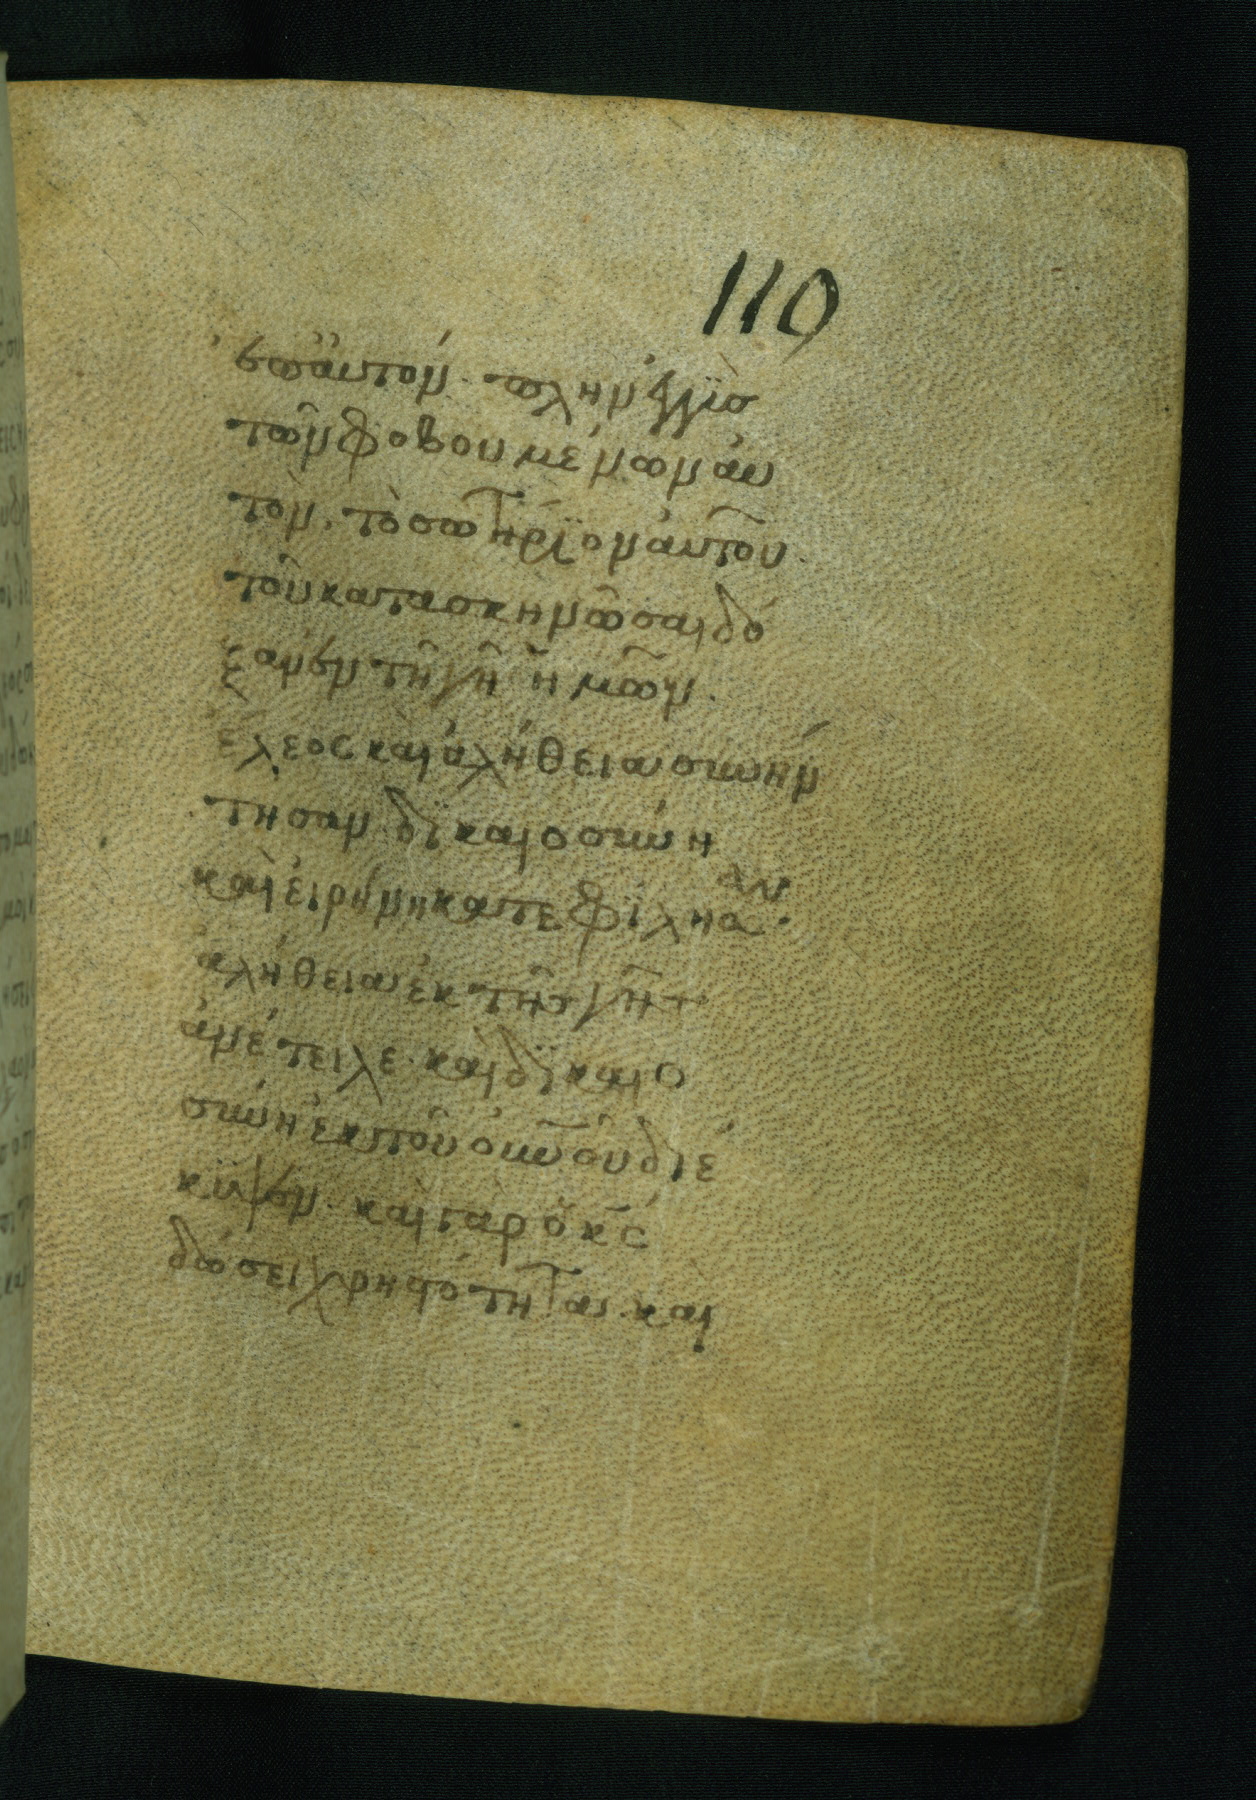 110
ἐπ αὐτόν. πλὴν ἐγγὺσ
τῶν φοβουμένων αὐ
τὸν. τὸ σωτήριον αὐτοῦ.
τοῦ κατασκηνῶσαι δό
ξαν ἐν τῆ γῆ ἡμῶν.
ἔλεος καὶ ἀλήθεια συνήν
τησαν. δικαιοσύνη
καὶ εἰρήνη κατεφίλησαν.
ἀλήθεια ἐκ τῆς γῆς
ἀνέτειλε. καὶ δικαιο
σύνη ἐκ τοῦ οὐνοῦ διέ
κυψεν. καὶ γὰρ ὁ κς
δώσει χρηστότητα. καὶ